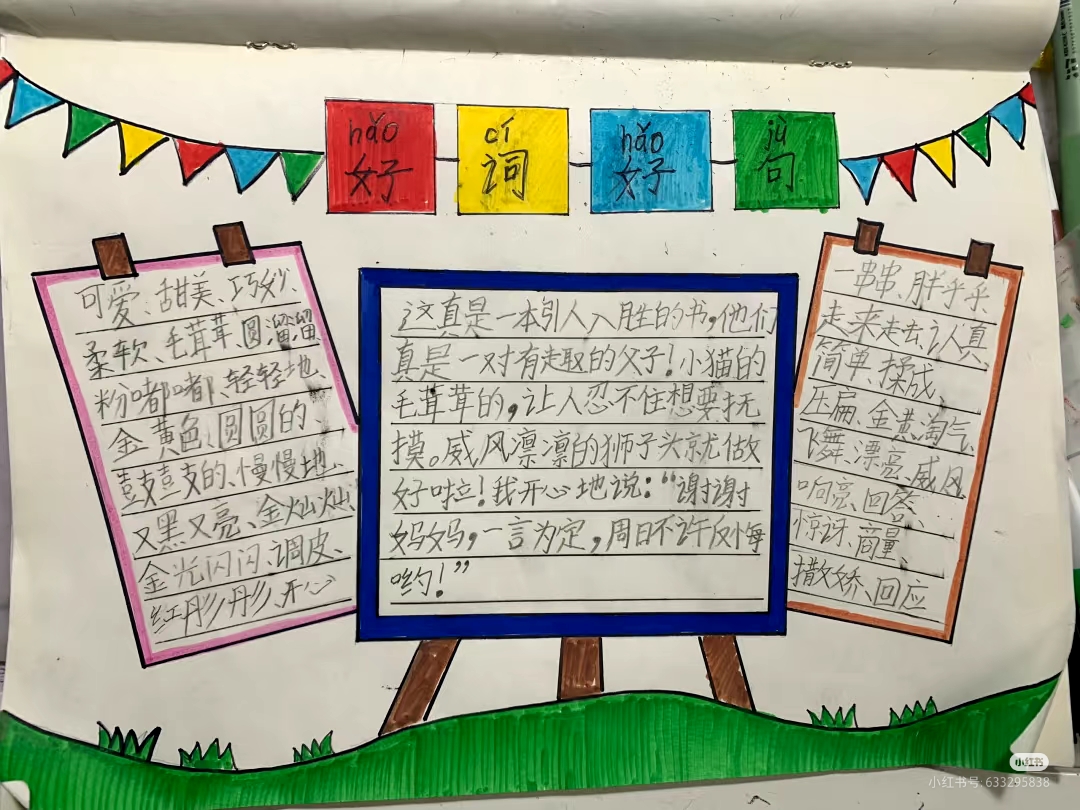 hǎo cí hǎo jù
好词好句
可爱、甜美、巧妙、
柔软、毛茸茸、圆溜溜
粉嘟嘟、轻轻地、
金黄色、圆圆的、
鼓鼓的、慢慢地、
又黑又亮、金灿灿、
金光闪闪、调皮、
红彤彤、开心
这真是一本引人入胜的书,他们
真是一对有趣的父子!小猫的
毛茸茸的,让人忍不住想要抚
摸。威风凛凛的狮子头就做
好啦!我开心地说:“谢谢
妈妈,一言为定,周日不许反悔
哟!”
一串串、胖乎乎、
走来走去、认真、
简单、揉成、
压扁、金黄、淘气、
飞舞、漂亮、威风、
响亮、回答、
惊讶、商量、
撒娇、回应
小红书
小红书号:633295838